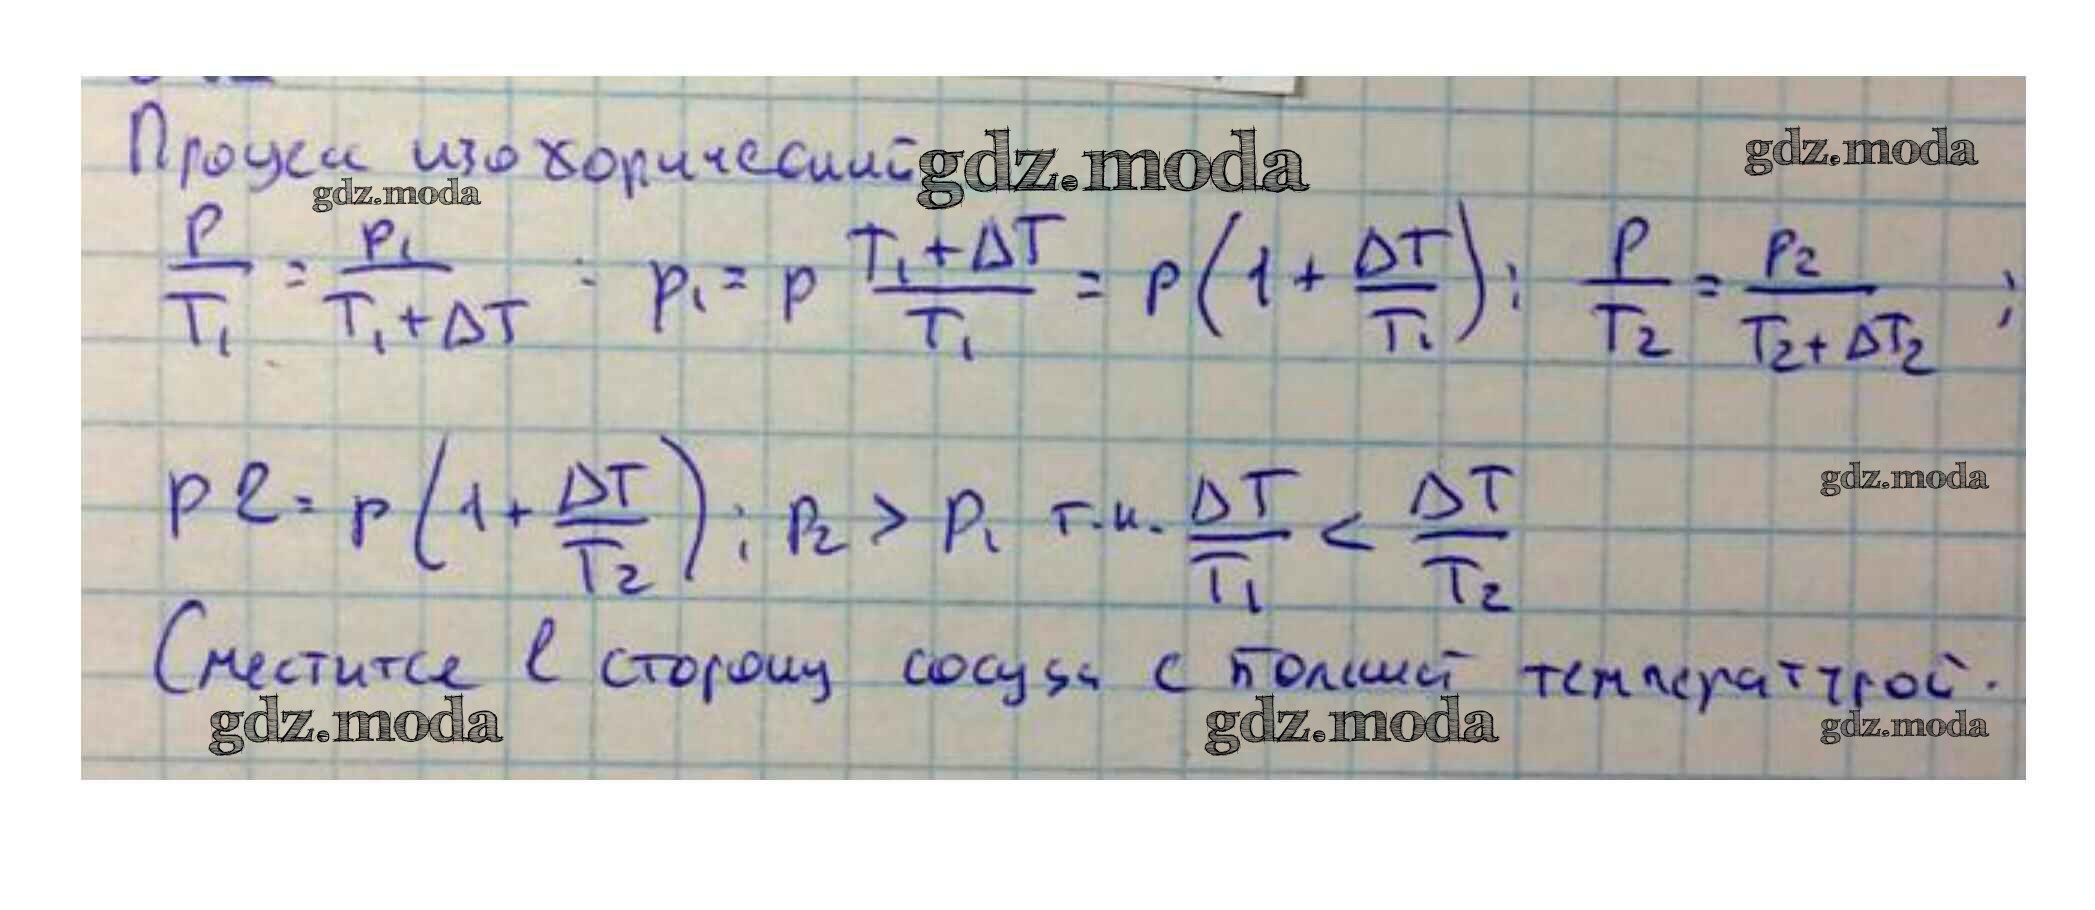 Процесс изохорический gdz.moda gdz.moda
gdz.moda
P/T₁ = P₁/(T₁+ΔT) : p₁ = p (T₁+ΔT)/T₁ = p(1+ΔT/T₁); P/T₂ = P₂/(T₂+ΔT₂) ;
p2 = p(1+ΔT/T₂); P₂ > P₁ т.к. ΔT/T₁ < ΔT/T₂ gdz.moda
Сместится в сторону сосуда с большей температурой.
gdz.moda gdz.moda gdz.moda